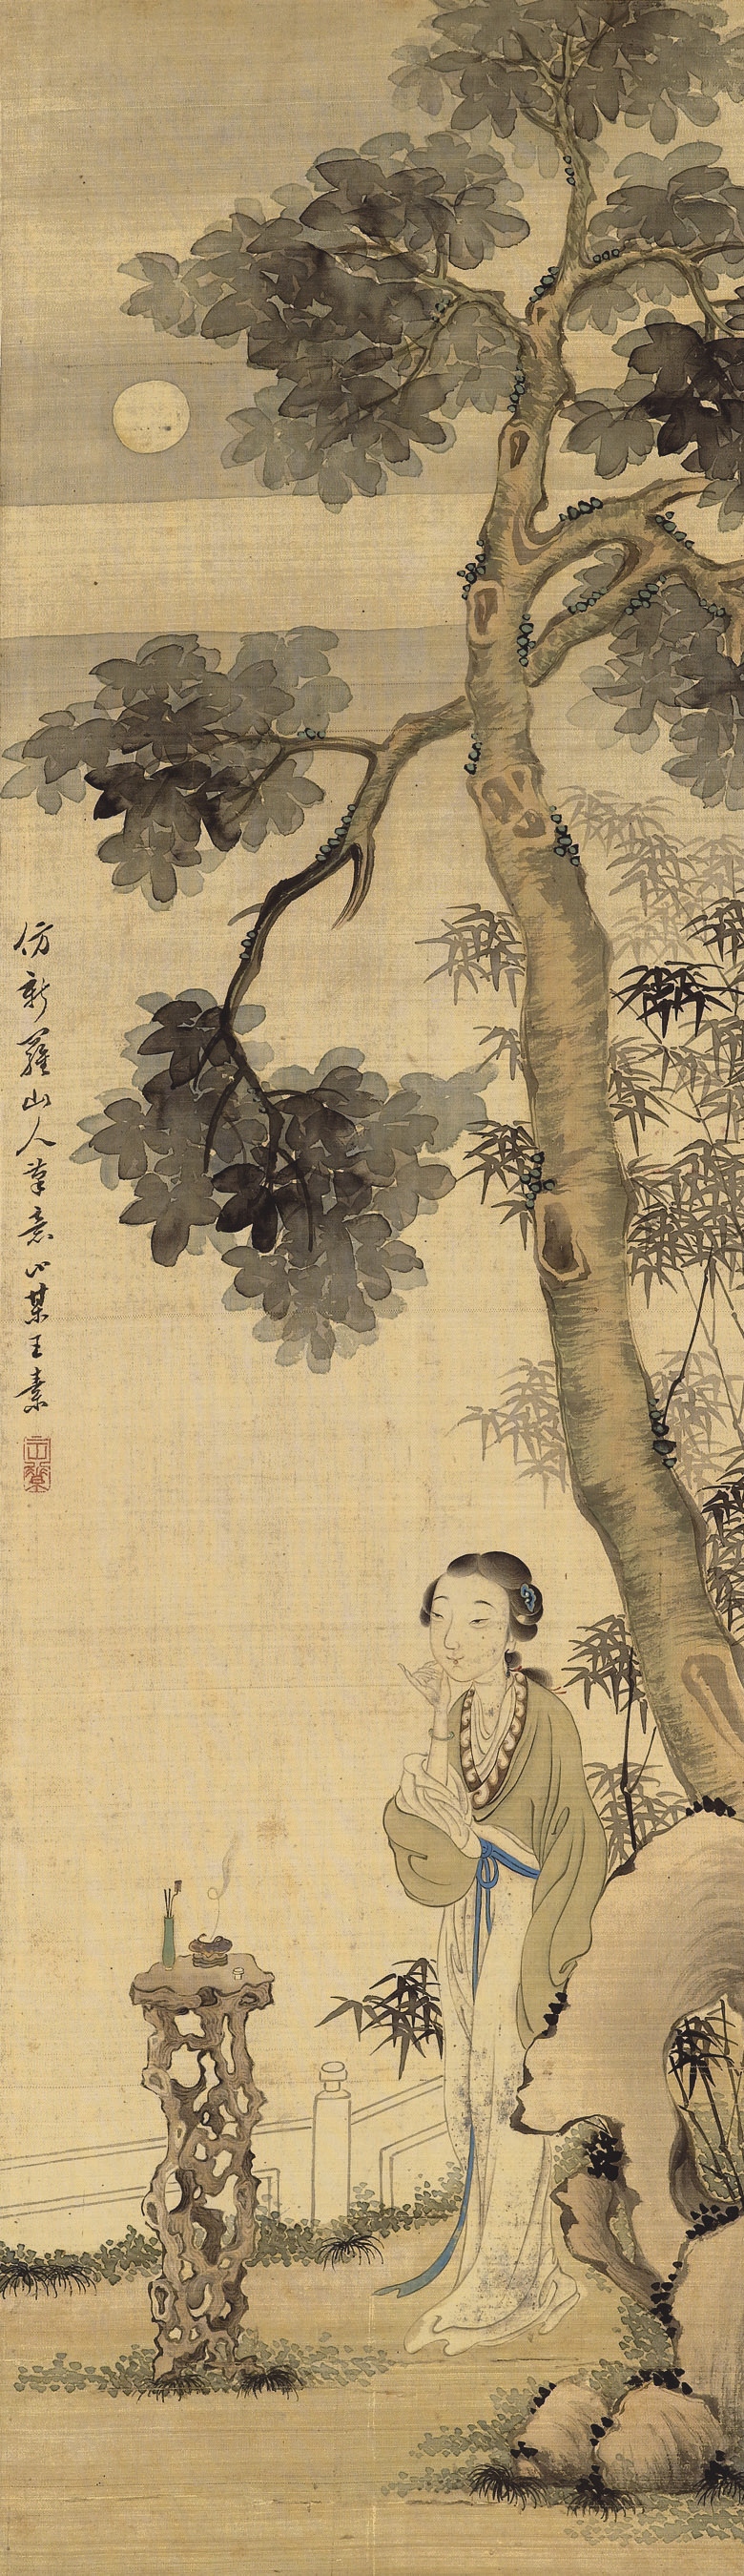 仿新羅山人筆意小某王素